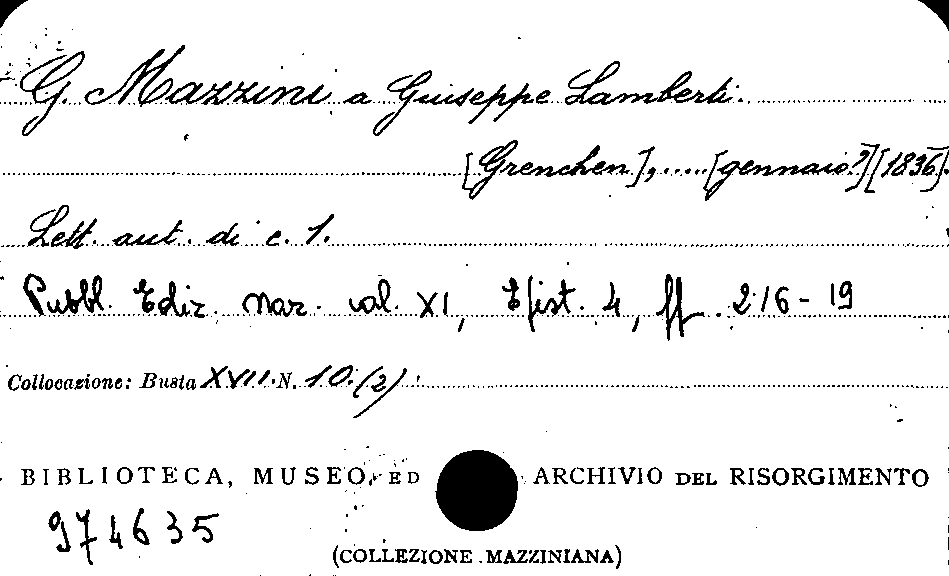 G. Mazzini a Giuseppe Lamberti.
[Grenchen],.....[gennaio?][1836].
Lett. aut. di c. 1.
Pubbl. Ediz. naz. vol. XI, Epist. 4, pp. 216-19
Collocazione: Busta XVII. N. 10.(2)
BIBLIOTECA, MUSEO, ED ARCHIVIO DEL RISORGIMENTO
974635
(COLLEZIONE MAZZINIANA)